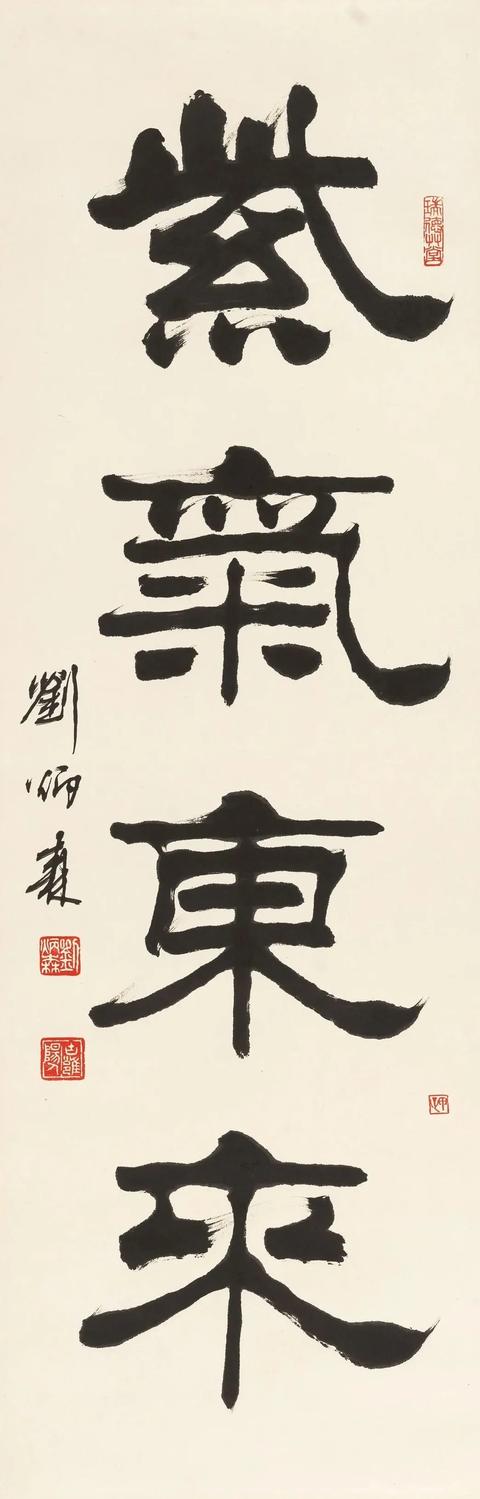 紫氣東來
劉炳森
劉炳森